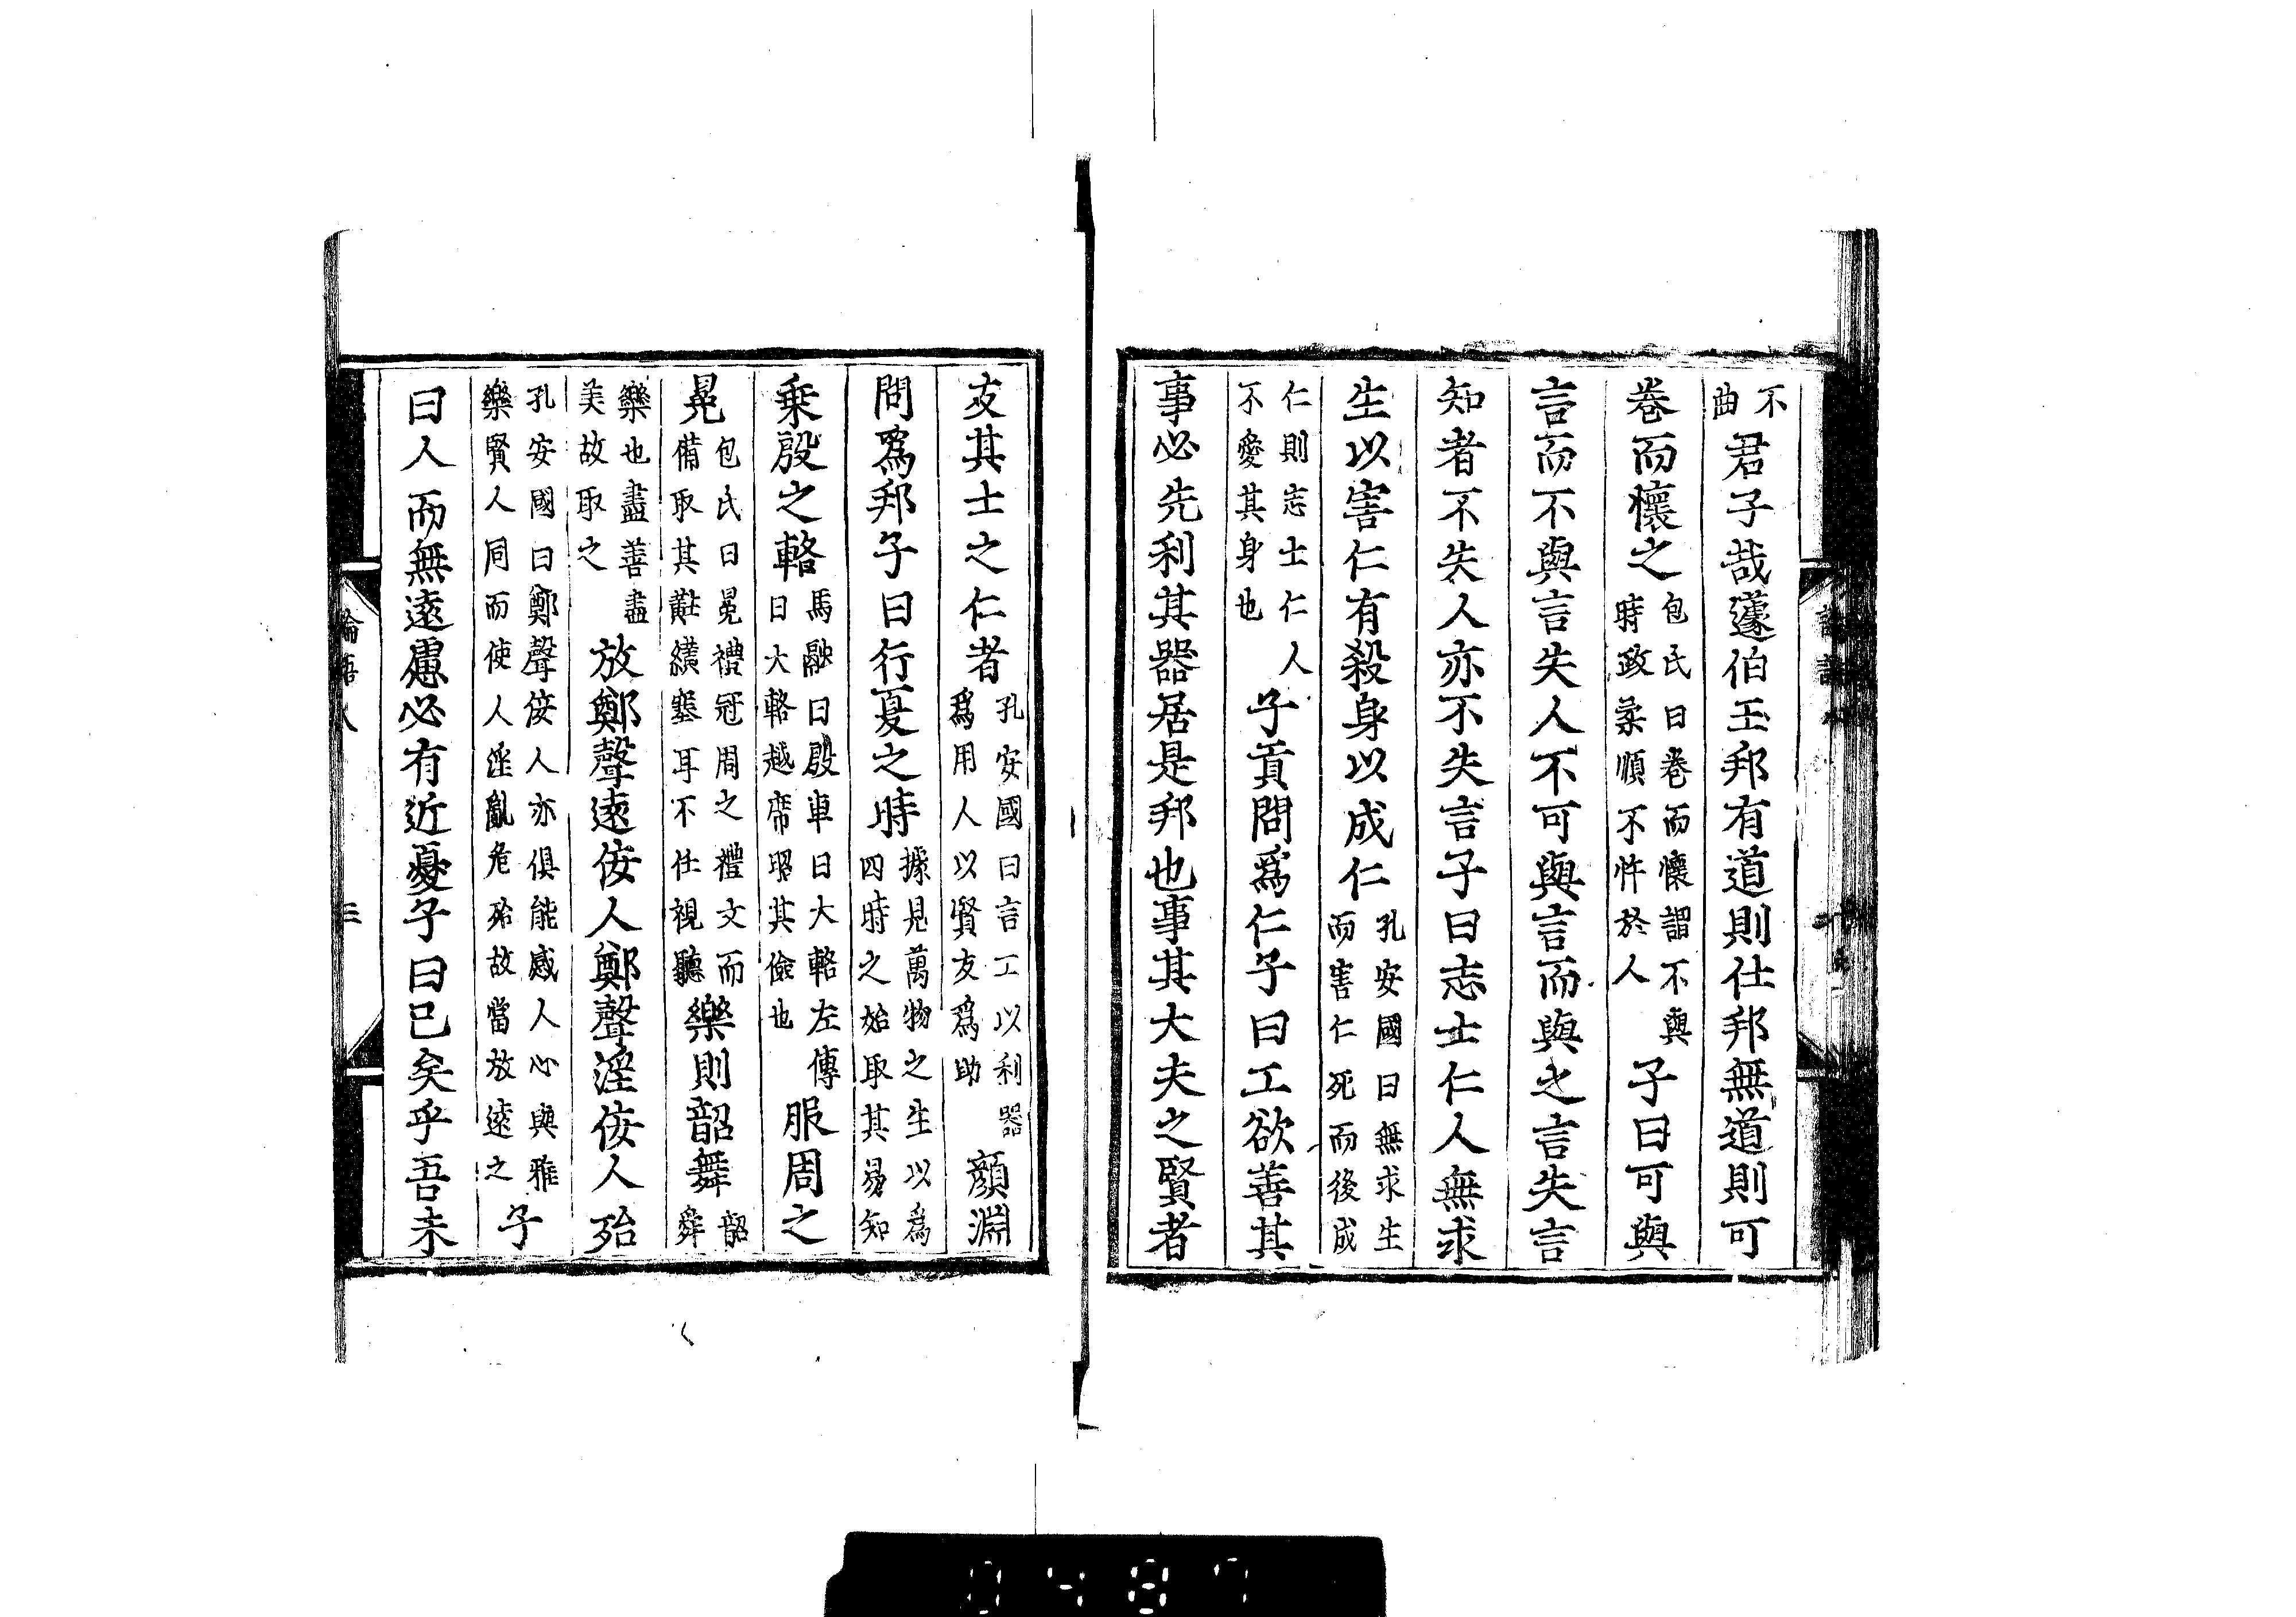 不曲君子哉蘧伯玉邦有道則仕邦無道則可
卷而懷之包氏曰卷而懷謂不與時政柔順不忤於人子曰可與
言而不與言失人不可與言而與之言失言
知者不失人亦不失言子曰志士仁人無求
生以害仁有殺身以成仁孔安國曰無求生而害仁死而後成
仁則志士仁人不愛其身也子貢問爲仁子曰工欲善其
事必先利其器居是邦也事其大夫之賢者
友其士之仁者孔安國曰言工以利器爲用人以賢友爲助顏淵
問爲邦子曰行夏之時據見萬物之生以爲四時之始取其易知
乗殷之輅馬融曰殷車曰大輅左傳曰大輅越席昭其儉也服周之
冕包氏曰冕禮冠周之禮文而備取其黈纊塞耳不任視聽樂則韶舞韶舜
樂也盡善盡美故取之放鄭聲遠佞人鄭聲淫佞人殆
孔安國曰鄭聲佞人亦俱能感人心與雅樂賢人同而使人淫亂危殆故當放遠之子
曰人而無遠慮必有近憂子曰已矣乎吾未
論語八
三